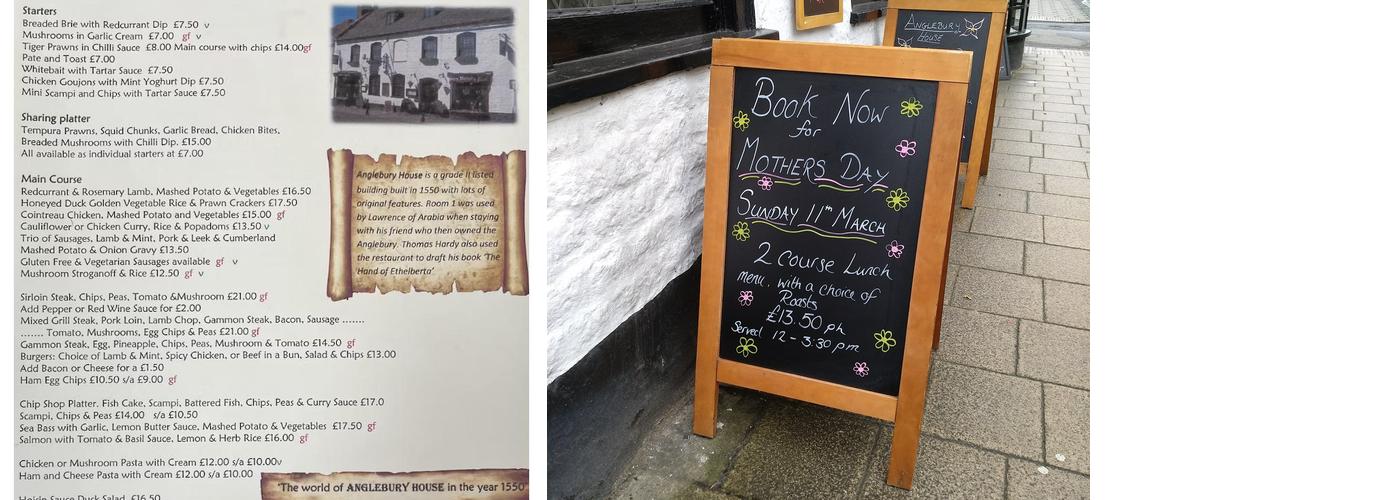 Starters
Breaded Brie with Redcurrant Dip £7.50 v
Mushrooms in Garlic Cream £7.00 gf v
Tiger Prawns in Chilli Sauce £8.00 Main course with chips £14.00gf
Pate and Toast £7.00
Whitebait with Tartar Sauce £7.50
Chicken Goujons with Mint Yoghurt Dip £7.50
Mini Scampi and Chips with Tartar Sauce £7.50
Sharing platter
Tempura Prawns, Squid Chunks, Garlic Bread, Chicken Bites,
Breaded Mushrooms with Chilli Dip. £15.00
All available as individual starters at £7.00
Main Course
Redcurrant & Rosemary Lamb, Mashed Potato & Vegetables £16.50
Honeyed Duck Golden Vegetable Rice & Prawn Crackers £17.50
Cointreau Chicken, Mashed Potato and Vegetables £15.00 gf
Cauliflower or Chicken Curry, Rice & Popadoms £13.50 v
Trio of Sausages, Lamb & Mint, Pork & Leek & Cumberland
Mashed Potato & Onion Gravy £13.50
Gluten Free & Vegetarian Sausages available gf v
Mushroom Stroganoff & Rice £12.50 gf v
Sirloin Steak, Chips, Peas, Tomato &Mushroom £21.00 gf
Add Pepper or Red Wine Sauce for £2.00
Mixed Grill Steak, Pork Loin, Lamb Chop, Gammon Steak, Bacon, Sausage .......
....... Tomato, Mushrooms, Egg Chips & Peas £21.00 gf
Gammon Steak, Egg, Pineapple, Chips, Peas, Mushroom & Tomato £14.50 gf
Burgers: Choice of Lamb & Mint, Spicy Chicken, or Beef in a Bun, Salad & Chips £13.00
Add Bacon or Cheese for a £1.50
Ham Egg Chips £10.50 s/a £9.00 gf
Chip Shop Platter, Fish Cake, Scampi, Battered Fish, Chips, Peas & Curry Sauce £17.0
Scampi, Chips & Peas £14.00 s/a £10.50
Sea Bass with Garlic, Lemon Butter Sauce, Mashed Potato & Vegetables £17.50 gf
Salmon with Tomato & Basil Sauce, Lemon & Herb Rice £16.00 gf
Chicken or Mushroom Pasta with Cream £12.00 s/a £10.00v
Ham and Cheese Pasta with Cream £12.00 s/a £10.00
Hoisin Sauce Duck Salad £16.50
Anglebury House is a grade II listed
building built in 1550 with lots of
original features. Room 1 was used
by Lawrence of Arabia when staying
with his friend who then owned the
Anglebury. Thomas Hardy also used
the restaurant to draft his book 'The
Hand of Ethelberta'
'The world of ANGLEBURY HOUSE in the year 1550'
ANGLEBURY
HOUSE
BOOK NOW
for
MOTHERS DAY
SUNDAY 11TH MARCH
2 COURSE LUNCH
menu. with a choice of
Roasts
£13.50 ph
Served 12-3:30 pm